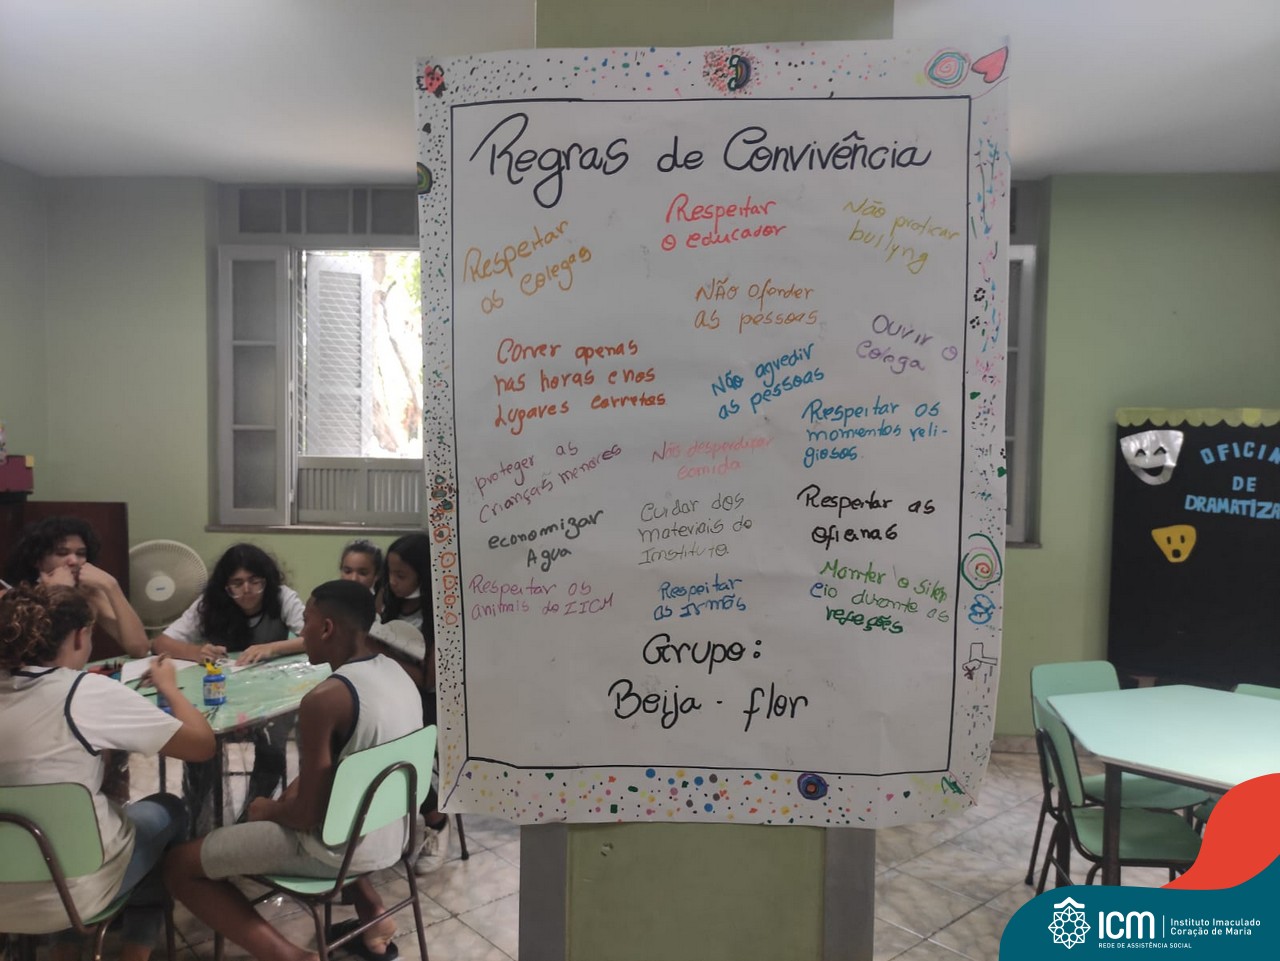 Regras de Convivência
Respeitar
os colegas
Respeitar
o educador
Não praticar
bullyng
NÃo ofender
as pessoas
Ouvir o
colega
Correr apenas
nas horas e nos
Lugares corretos
Não agredir
as pessoas
Respeitar os
momentos reli-
giosos.
proteger as
crianças menores
Não desperdiçar
comida
economizar
Agua
Cuidar dos
materiais do
Instituto
Respeitar as
oficinas
Respeitar os
animais do IICM
Respeitar
as Irmãs
Manter o silên
cio durante as
refeições
Grupo:
Beija - flor
OFICIN
DE
DRAMATIZA
ICM
Instituto Imaculado
Coração de Maria
REDE DE ASSISTÊNCIA SOCIAL